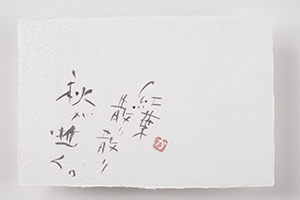 紅葉
散り散り
秋が逝く。